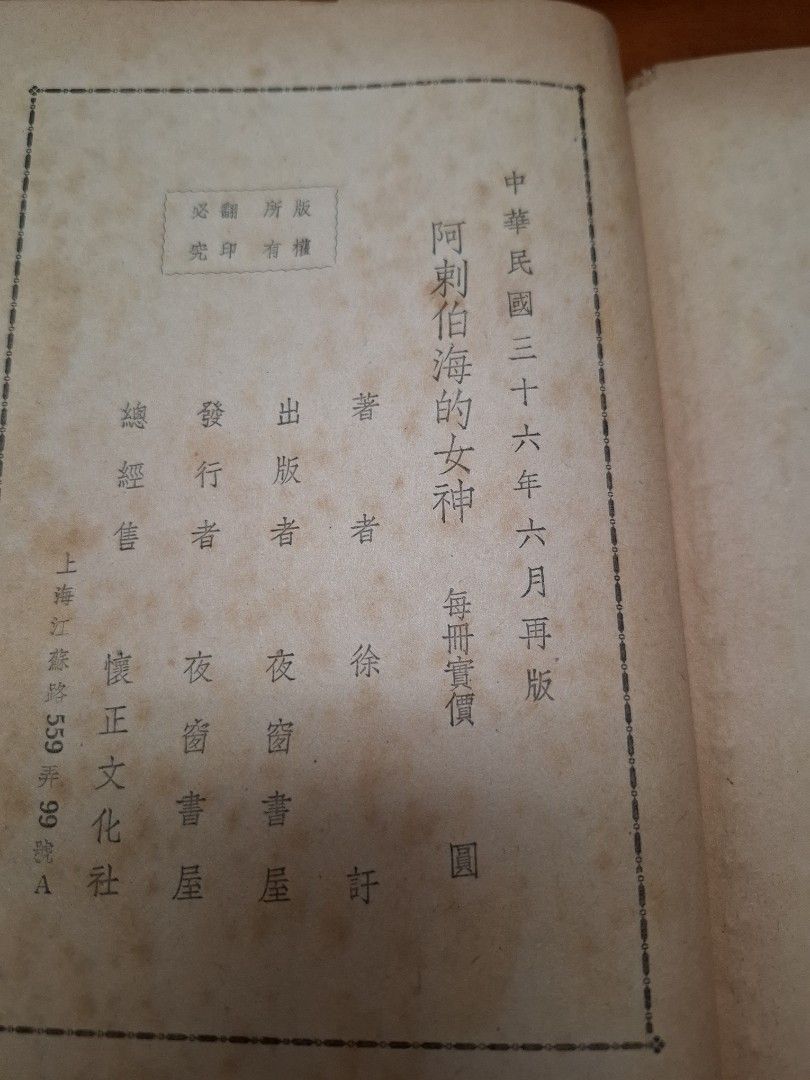 中華民國三十六年六月再版
阿剌伯海的女神 每冊實價 圓
著者 徐訏
出版者 夜窗書屋
發行者 夜窗書屋
總經售 懷正文化社
上海江蘇路559弄99號A
版權所有
翻印必究